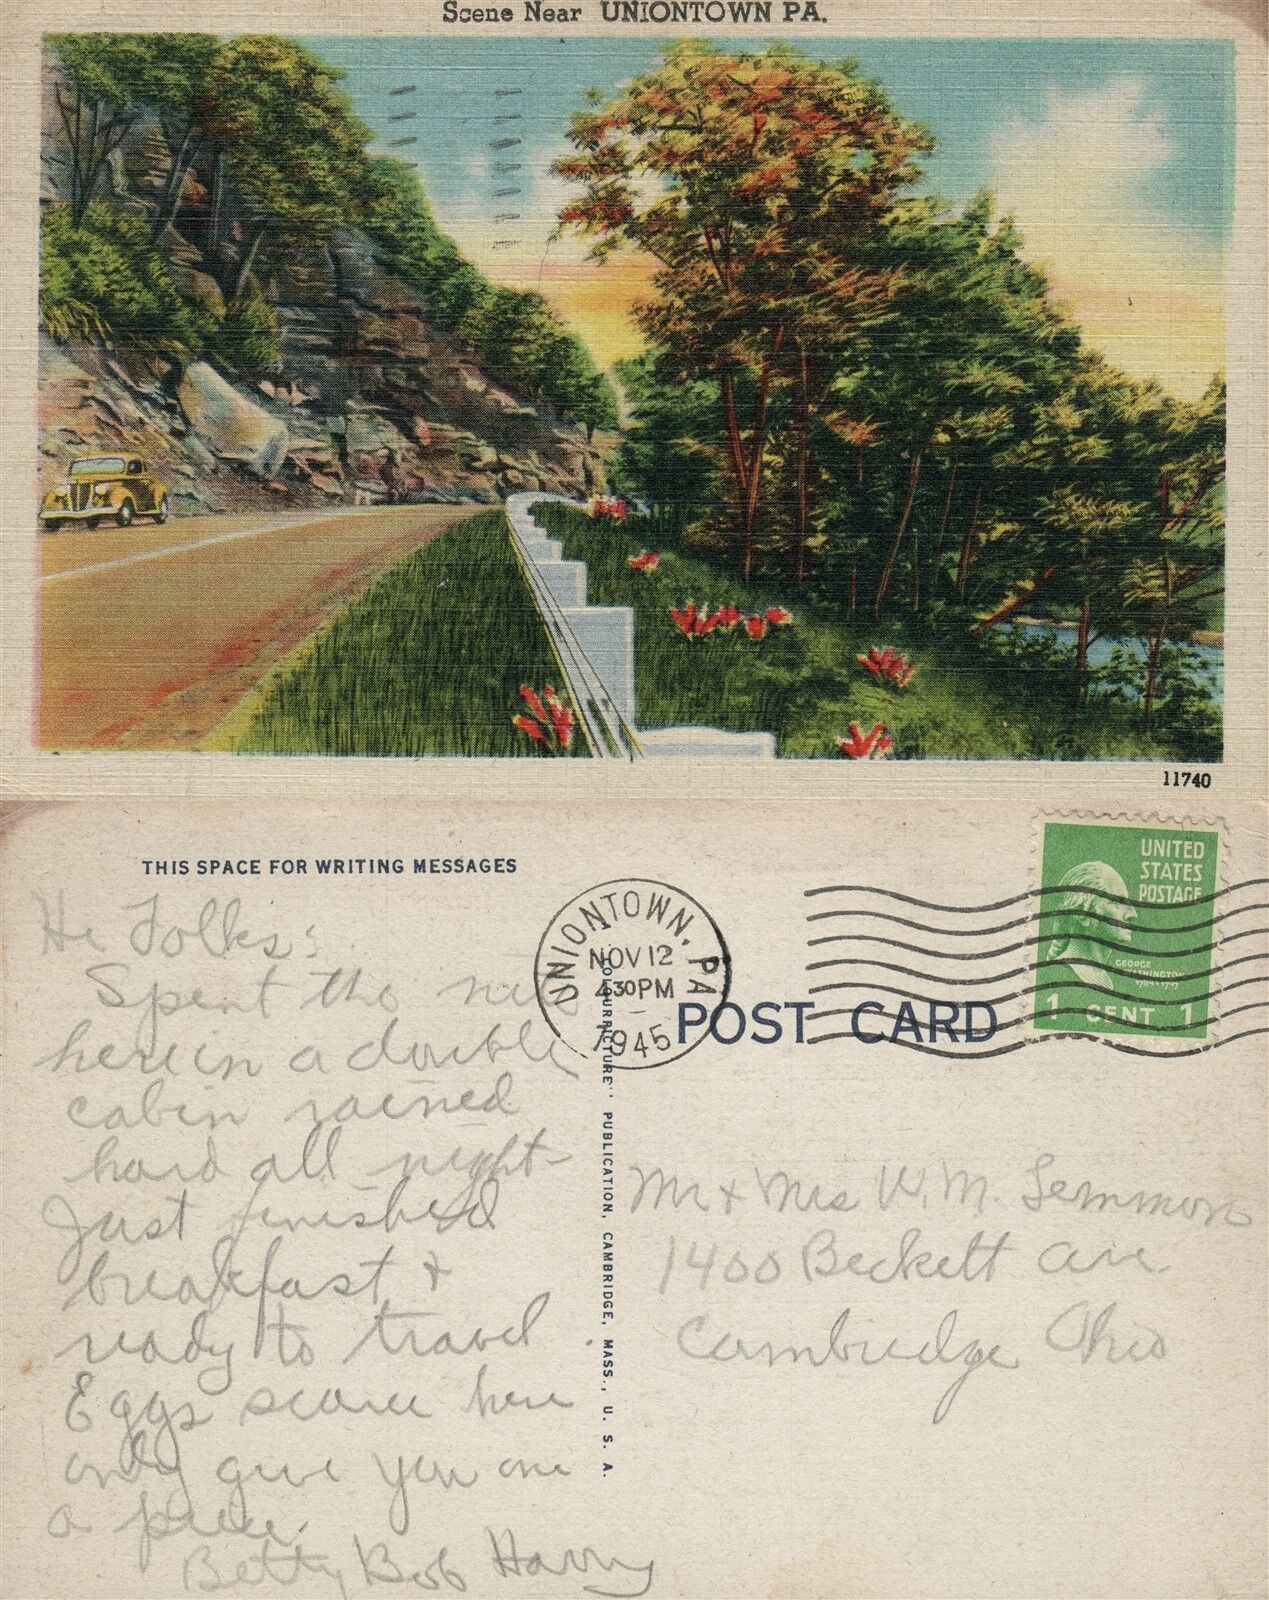 Scene Near UNIONTOWN PA.
11740
THIS SPACE FOR WRITING MESSAGES
Hi Folks:
Spent the
here in a double
cabin rained
hard all night-
Just finished
breakfast +
ready to travel
Eggs scarce here
only give you one
a piece.
Betty Bob Harry
UNIONTOWN, PA
NOV 12
430PM
1945
POST CARD
UNITED
STATES
POSTAGE
GEORGE
WASHINGTON
1 CENT 1
"COLOURPICTURE" PUBLICATION, CAMBRIDGE, MASS., U. S. A.
Mr + Mrs W. M. Semmons
1400 Beckett Ave.
Cambridge Ohio